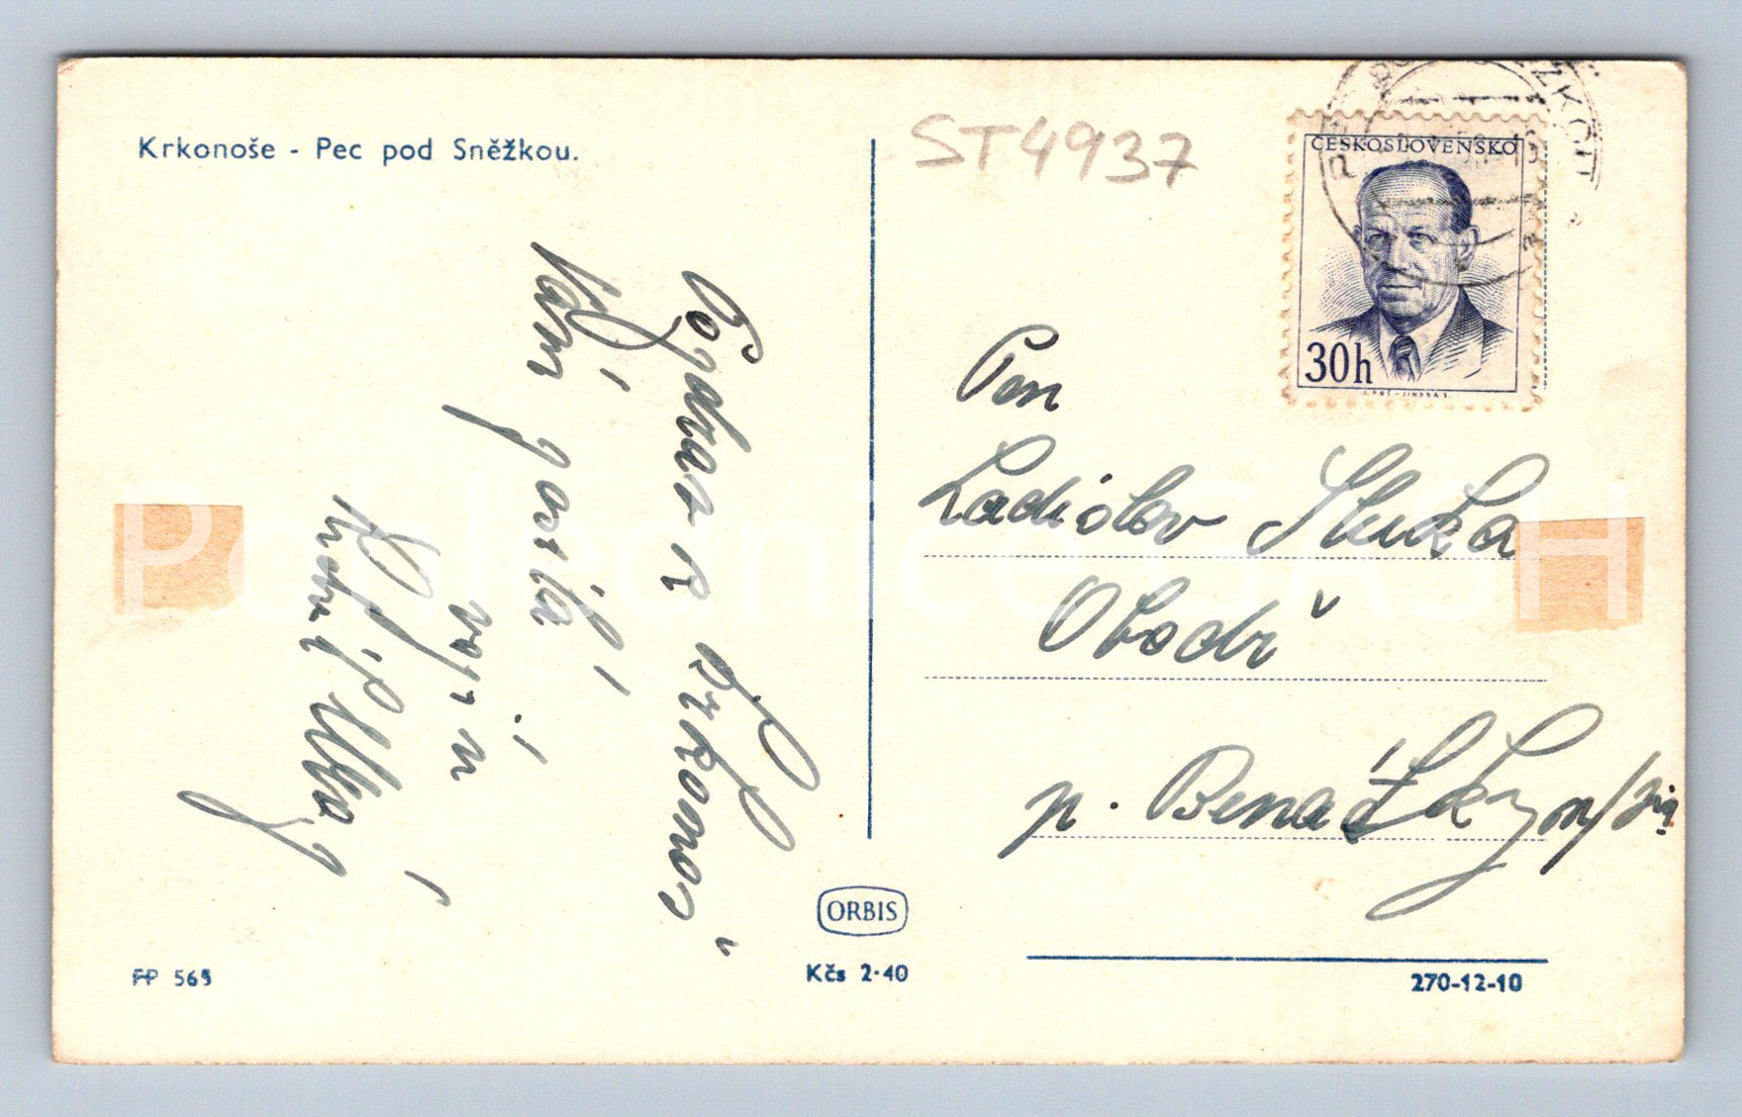 Krkonoše - Pec pod Sněžkou.
ST4937
ČESKOSLOVENSKO
30h
Pozdrav z Krkonoš
Vám posílá
Pan
Ladislav Sluka
Obodř
p. Benátky n/Jiz.
ORBIS
Kčs 2·40
FP 565
270-12-10